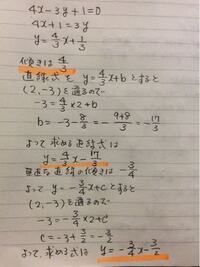 4x-3y+1=0
4x+1=3y
y=4/3x+1/3
傾きは 4/3
直線式を y=4/3x+bとすると
(2,-3)を通るので
-3=4/3×2+b
b=-3-8/3=-(9+8)/3=-17/3
よって求める直線式は
y=4/3x-17/3
垂直な直線の傾きは -3/4
よって y=-3/4x+cとすると
(2,-3)を通るので
-3=-3/4×2+c
c=-3+3/2=-3/2
よって、求める式は y=-3/4x-3/2